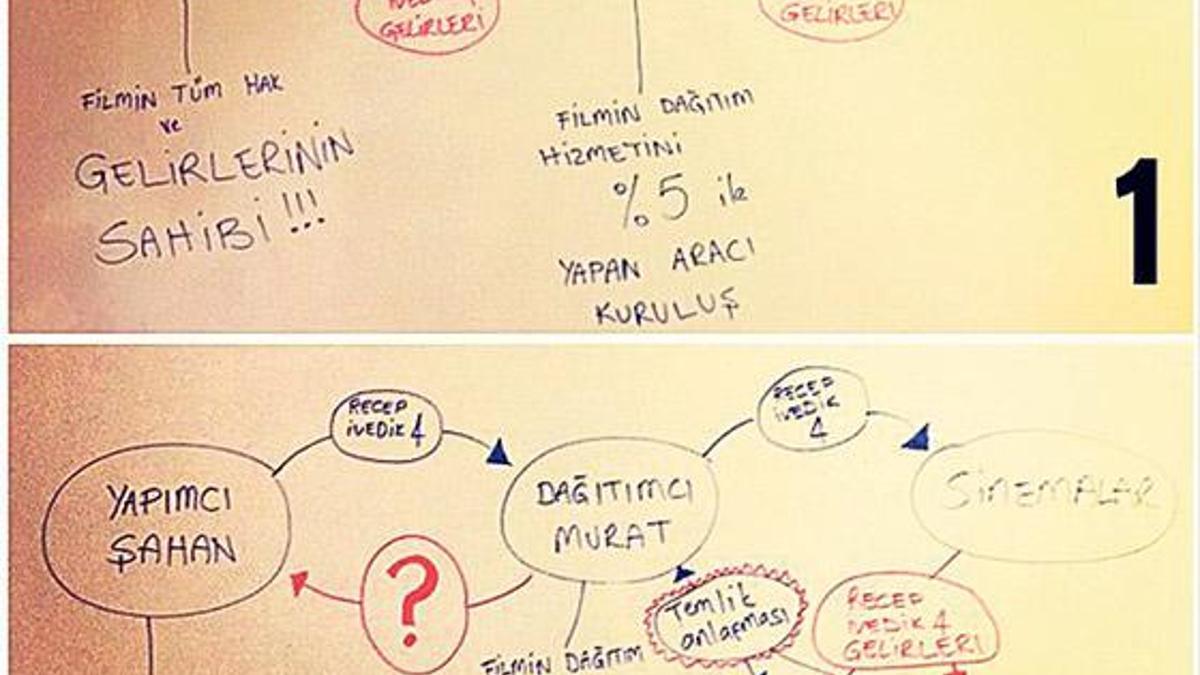 GELİRLERİ
GELİRLERİ
FİLMİN TÜM HAK
ve
GELİRLERİNİN
SAHİBİ!!!
FİLMİN DAĞITIM
HİZMETİNİ
%5 ile
YAPAN ARACI
KURULUŞ
1
RECEP
İVEDİK 4
RECEP
İVEDİK
4
YAPIMCI
ŞAHAN
DAĞITIMCI
MURAT
SİNEMALAR
?
Temlik
anlaşması
RECEP
İVEDİK 4
GELİRLERİ
FİLMİN DAĞITIM